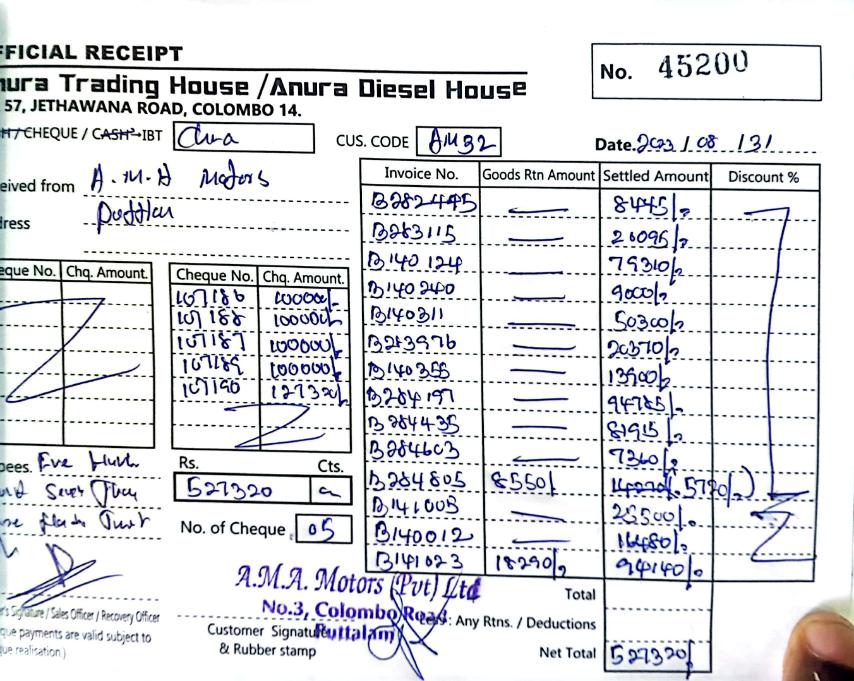 FFICIAL RECEIPT
nura Trading House /Anura Diesel House
57, JETHAWANA ROAD, COLOMBO 14.
No. 45200
CHEQUE / CASH IBT
CUS. CODE AM32
Date. 2023 / 08 / 31
eived from A.M.A Motors
ress
eque No. Chq. Amount.
Cheque No. Chq. Amount.
107186 100000/-
107188 100000/-
107187 100000/-
107189 100000/-
107190 127320/-
Invoice No. Goods Rtn Amount Settled Amount Discount %
B282445 — 8445/-
B283115 — 20095/-
B140124 — 79310/-
B140240 — 9000/-
B140311 — 50300/-
B283976 — 20370/-
B140355 — 13900/-
B284197 — 94785/-
B284435 — 81915/-
B284603 — 7360/-
B284805 8550/- 14270/- (5720/-)
B141005 — 25500/-
B140012 — 16480/-
B141023 18290/- 94140/-
pees. Five Hun
Seven
Rs. Cts.
527320
No. of Cheque 05
A.M.A. Motors (Pvt) Ltd
No.3, Colombo Road
Puttalam
r's Signature / Sales Officer / Recovery Officer
que payments are valid subject to
que realisation.)
Customer Signature
& Rubber stamp
Total
Less : Any Rtns. / Deductions
Net Total 527320/-